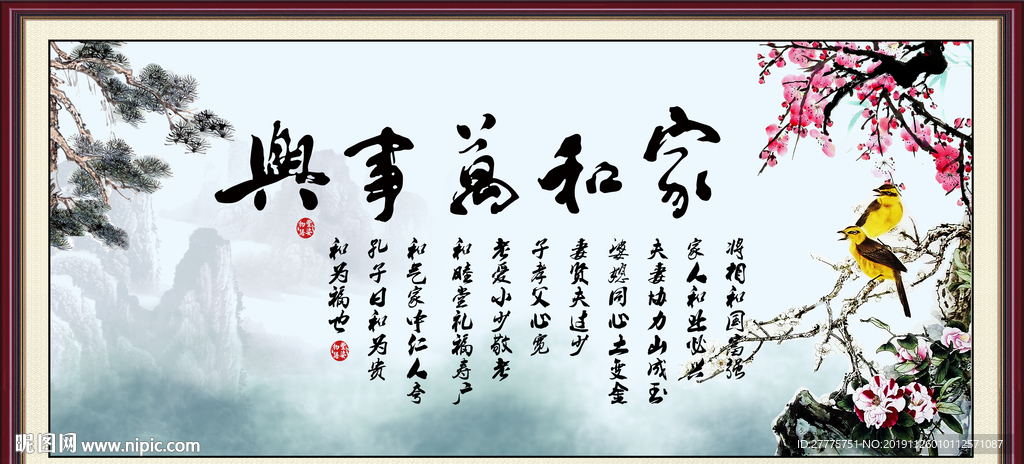 家和萬事興
将相和国富强
家人和业必兴
夫妻协力山成玉
婆媳同心土变金
妻贤夫过少
子孝父心宽
老爱小少敬老
和睦堂礼福寿广
和气家中仁人夸
孔子曰和为贵
和为福也
昵图网 www.nipic.com
ID:27775751-NO:20191126010112571087